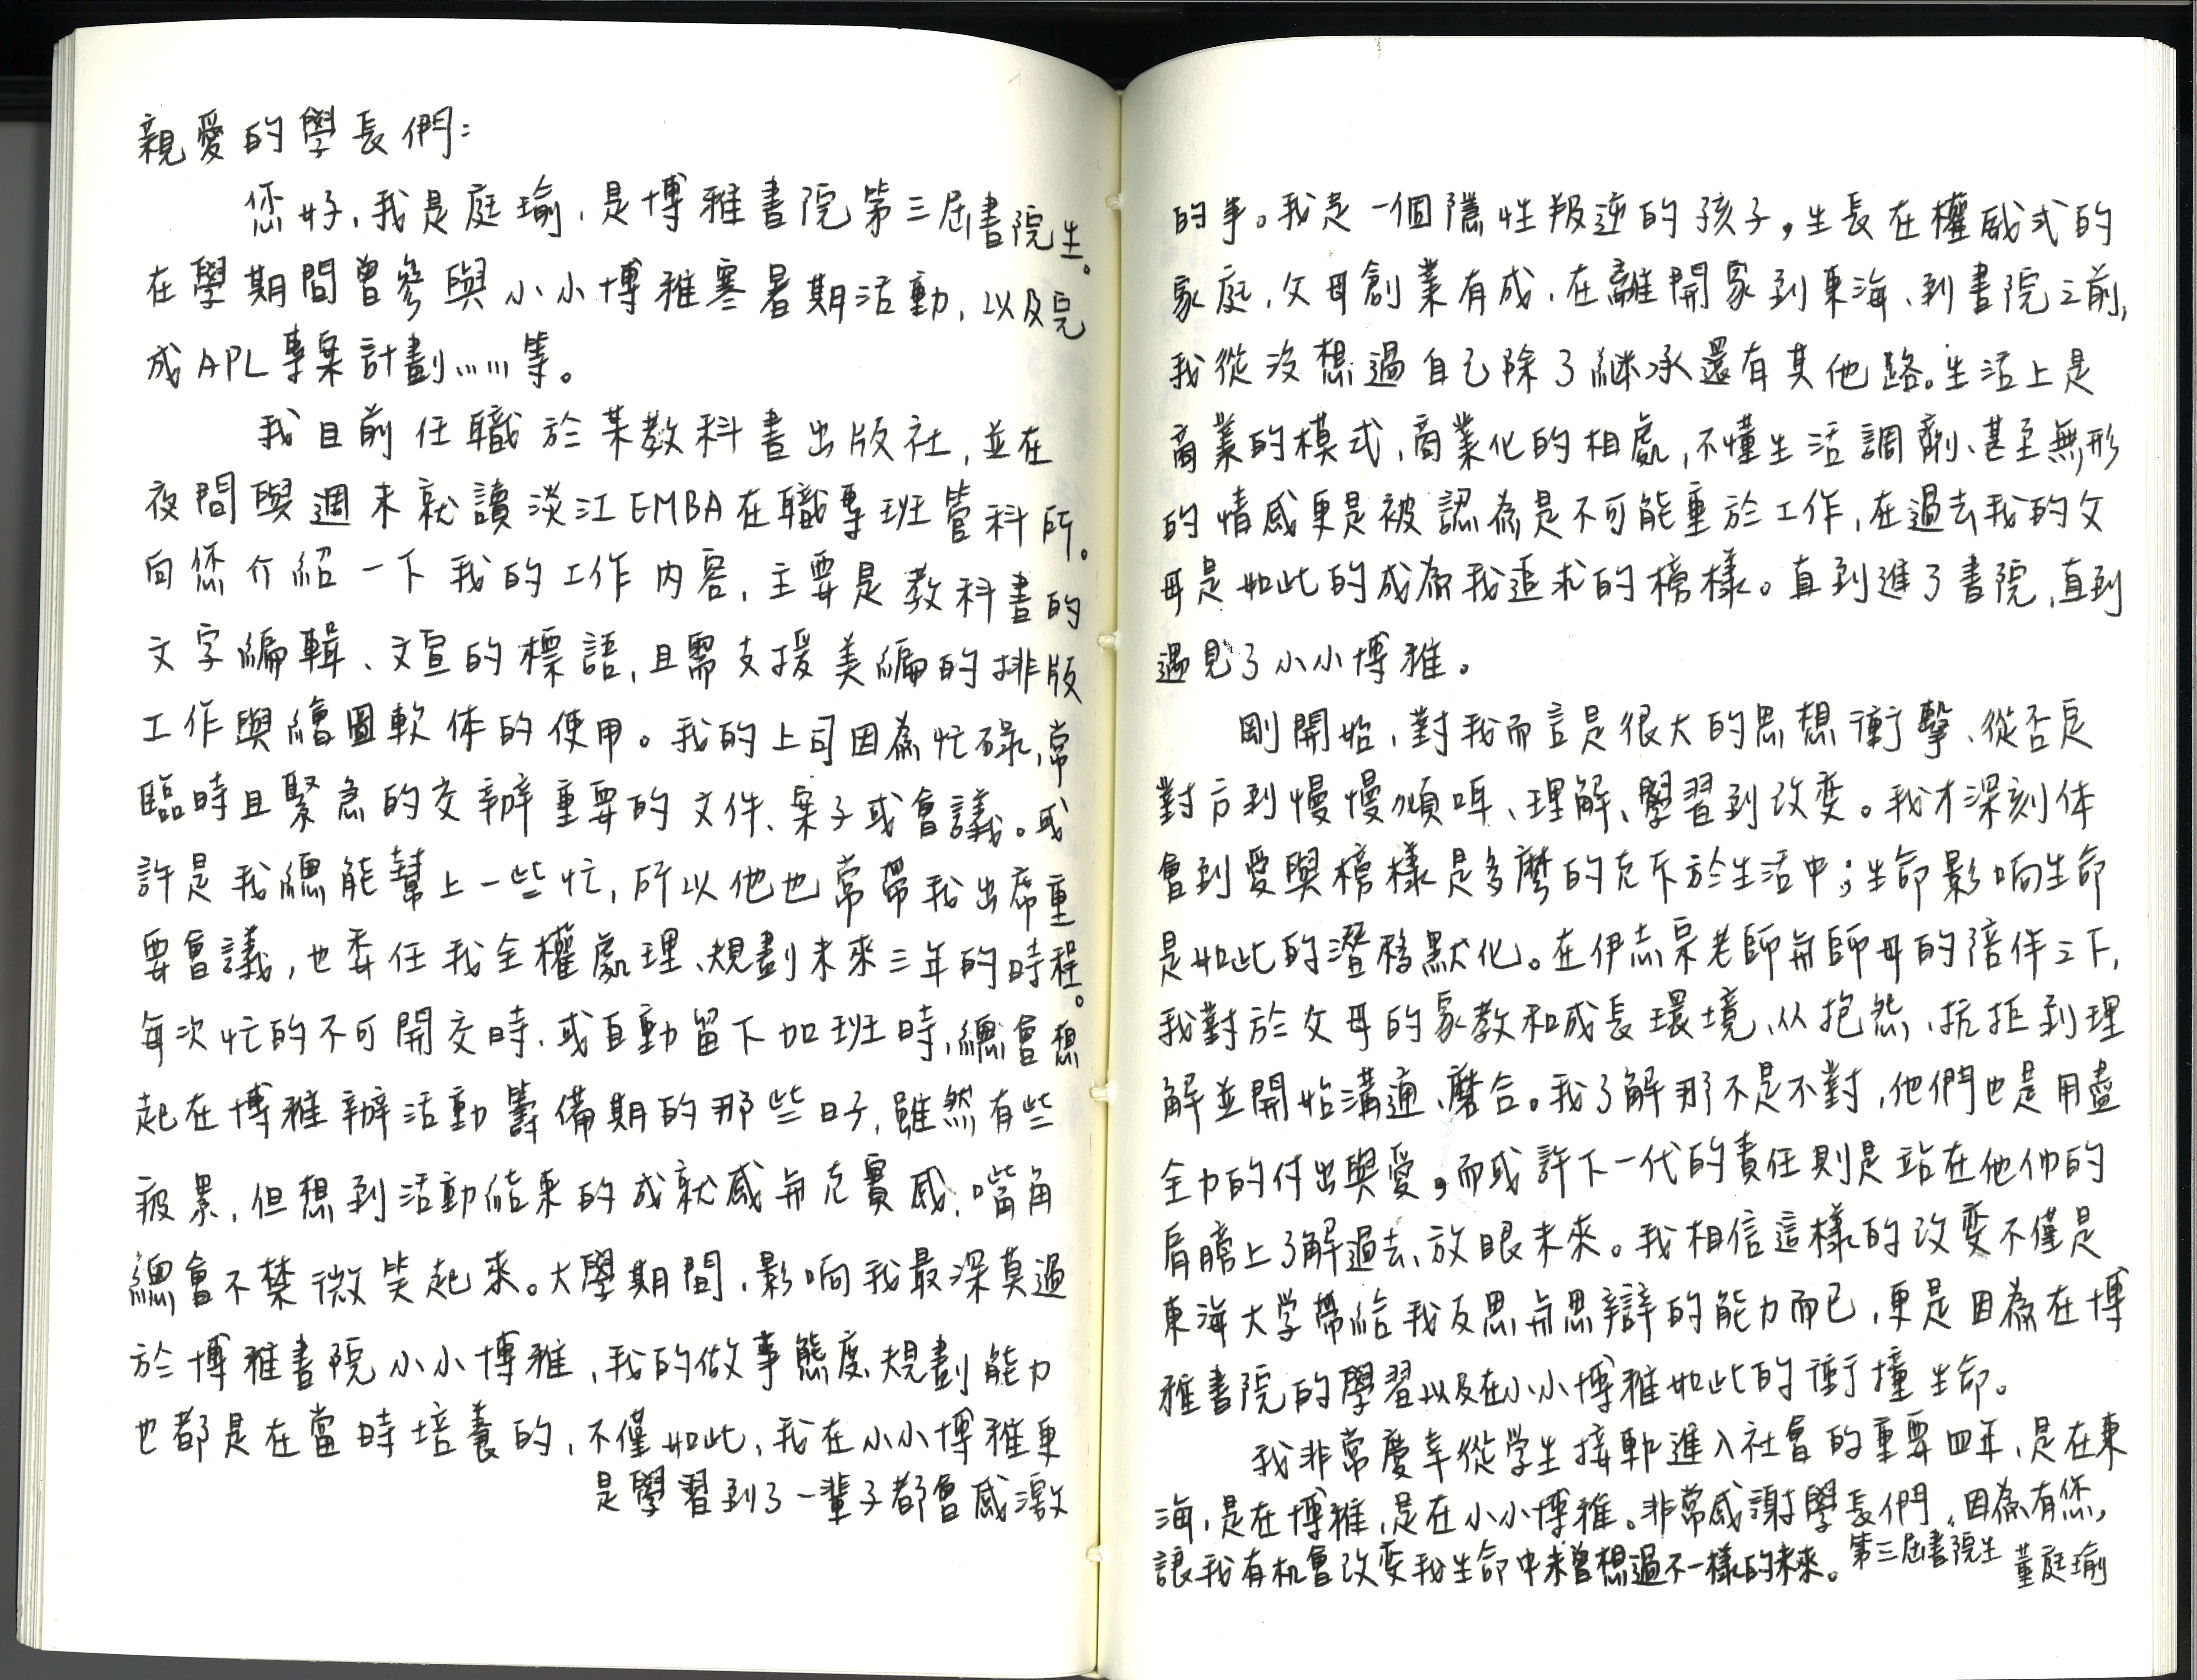 親愛的學長們：
您好，我是庭瑜，是博雅書院第三屆書院生。
在學期間曾參與小小博雅寒暑期活動，以及完
成APL專案計劃……等。
我目前任職於某教科書出版社，並在
夜間與週末就讀淡江EMBA在職專班管科所。
向您介紹一下我的工作內容，主要是教科書的
文字編輯、文宣的標語，且需支援美編的排版
工作與繪圖軟体的使用。我的上司因為忙碌，常
臨時且緊急的交辦重要的文件、案子或會議。或
許是我總能幫上一些忙，所以他也常帶我出席重
要會議，也委任我全權處理、規劃未來三年的時程。
每次忙的不可開交時、或自動留下加班時，總會想
起在博雅辦活動籌備期的那些日子，雖然有些
疲累，但想到活動結束的成就感與充實感，嘴角
總會不禁微笑起來。大學期間，影响我最深莫過
於博雅書院小小博雅，我的做事態度、規劃能力
也都是在當時培養的，不僅如此，我在小小博雅更
是學習到了一輩子都會感激
的事。我是一個隱性叛逆的孩子，生長在權威式的
家庭，父母創業有成，在離開家到東海、到書院之前，
我從沒想過自己除了継承還有其他路。生活上是
商業的模式，商業化的相處，不懂生活調劑、甚至無形
的情感更是被認為是不可能重於工作，在過去我的父
母是如此的成為我追求的榜樣。直到進了書院，直到
遇見了小小博雅。
剛開始，對我而言是很大的思想衝擊、從否定
對方到慢慢傾听、理解、學習到改变。我才深刻体
會到愛與榜樣是多麼的充斥於生活中；生命影响生命
是如此的潛移默化。在伊志宗老師與師母的陪伴之下，
我對於父母的家教和成長環境、从抱怨、抗拒到理
解並開始溝通、磨合。我了解那不是不對，他們也是用盡
全力的付出與愛，而或許下一代的責任則是站在他們的
肩膀上了解過去、放眼未來。我相信這樣的改变不僅是
東海大学帶給我反思與思辯的能力而已，更是因為在博
雅書院的學習以及在小小博雅如此的衝撞生命。
我非常慶幸從学生接軌進入社會的重要四年，是在東
海，是在博雅，是在小小博雅。非常感謝學長們，因為有您，
讓我有机會改变我生命中未曾想過不一樣的未來。第三屆書院生 董庭瑜